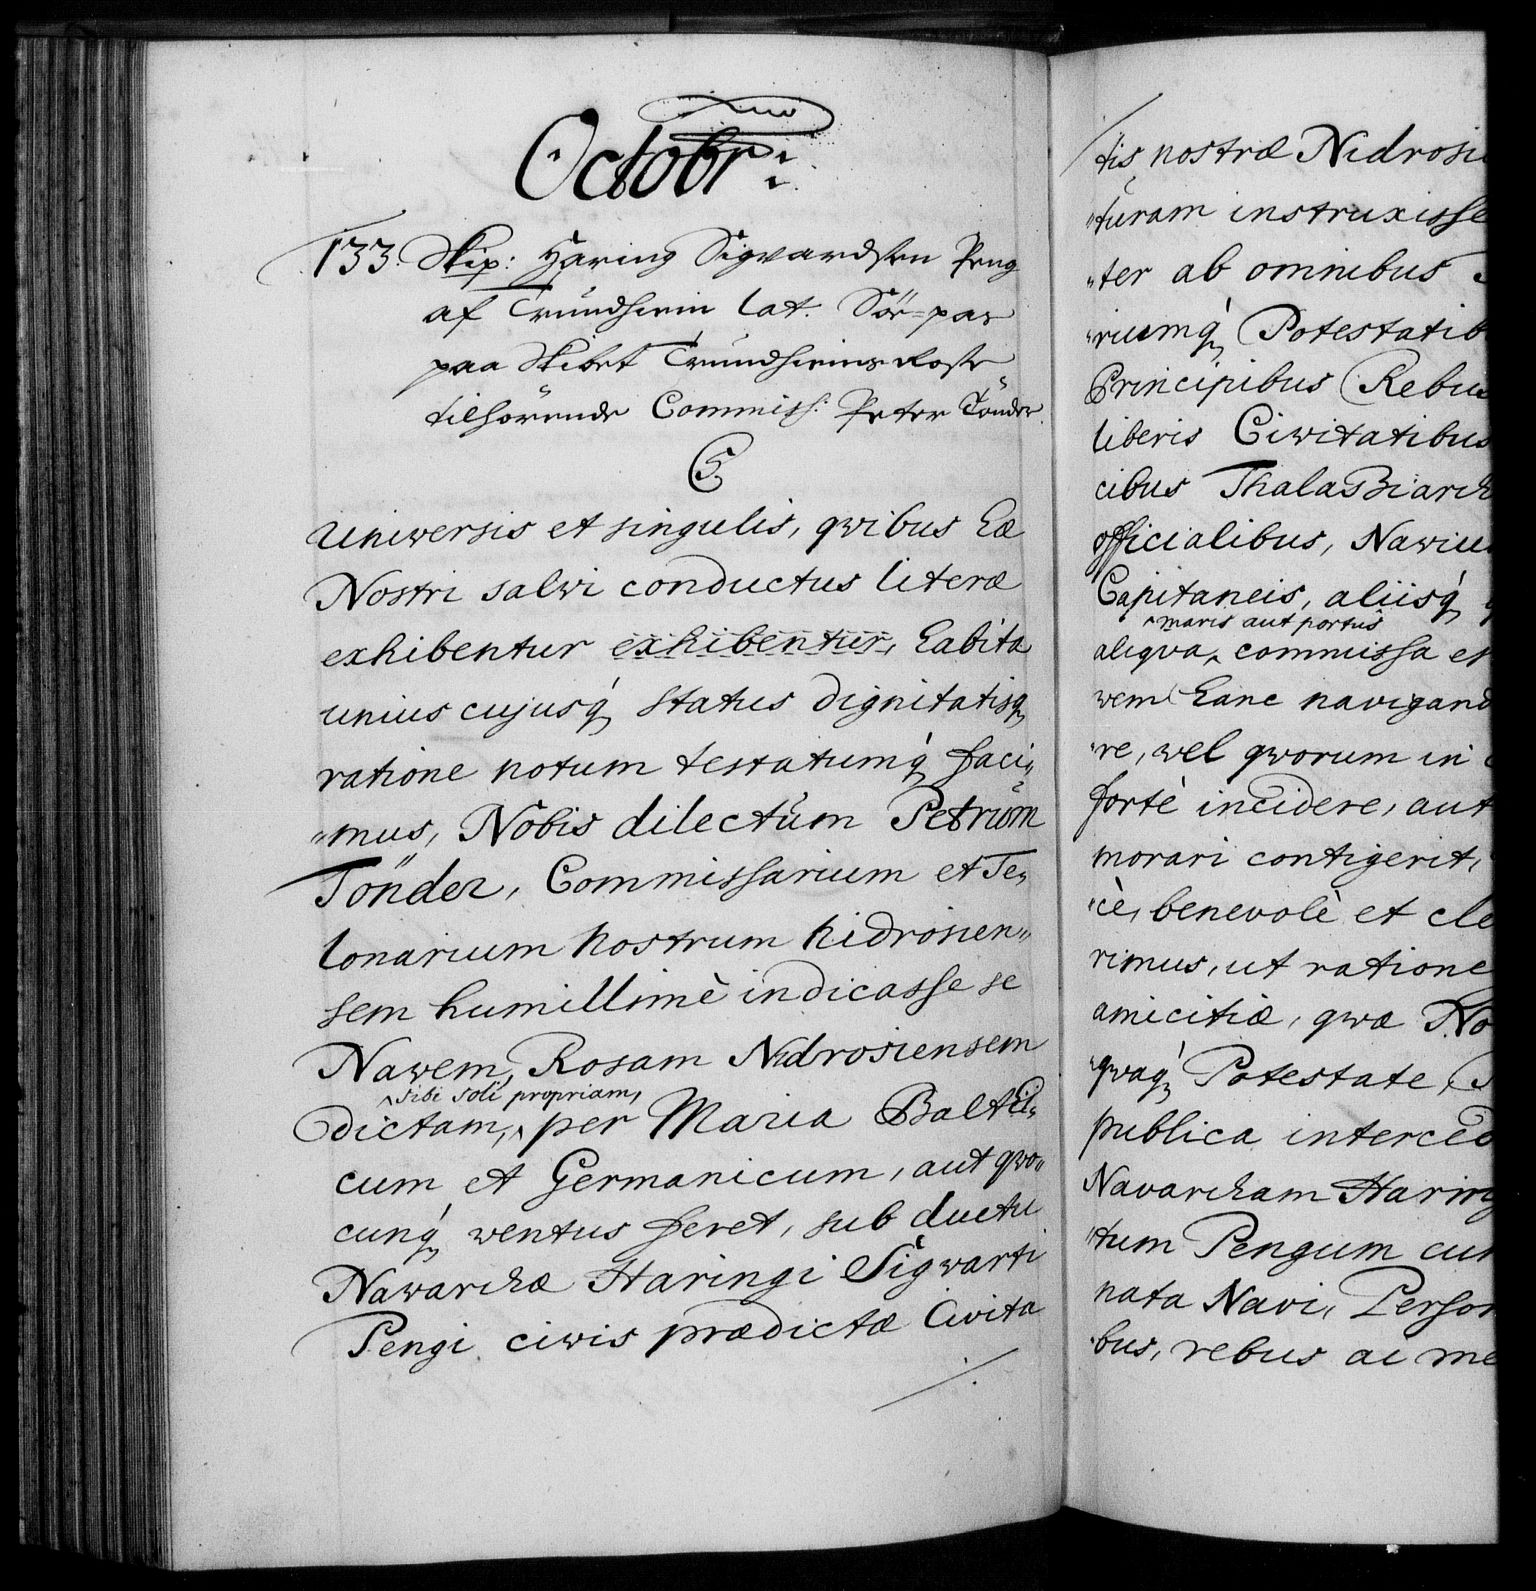 Octobr:
133. Skip: Haring Sigvardsen Peng
af Trundhiem lat. Söe-pas
paa Skibet Trundhiems Rose
tilhörende Commiss: Peter Tönder.
C5.
Universis et singulis, qvibus hæ
Nostri salvi conductus literæ
exhibentur exhibentur, habita
unius cujusq́ status dignitatisq́
ratione notum testatumq́ faci„
„mus, Nobis dilectum Petrum
Tönder, Commissarium et Te„
lonarium nostrum hidrosien„
sem humillimè indicasse se
Nawem, Rosam Nidrosiensem
^sibi soli propriam,
dictam,^ per Maria Balthi„
cum et Germanicum, aut qvo„
cunq́ ventus feret, sub ductu
Nawarchæ Haringi Sigwarti
Pengi civis prædictæ Civita
/.
tis nostræ Nidrosie
„turam instruxisse
„ter ab omnibus
„riumq́ Potestatib
Principibus Rebus
liberis Civitatibus
cibus Thalassiarch
officialibus, Naviu
Capitaneis, aliisq́
^maris aut portus
aliqva^ commissa es
vem hanc navigand
„re, vel qvorum in
fortè incidere, aut
morari contigerit,
„cè, benevolè et cle
rimus, ut ratione
amicitiæ, qvæ No
„qvaq́ Potestate,
publica interced
Navarcham Haring
„tum Pengum cum
nata Navi, Person
„bus, rebus ac me